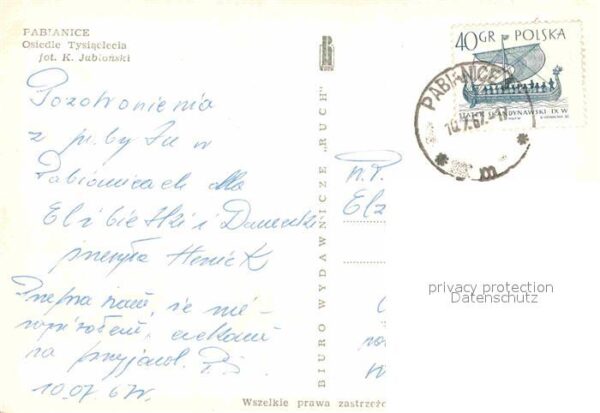 PABIANICE
Osiedle Tysiąclecia
fot. K. Jabłoński
Pozdrowienia
z pobytu w
Pabianicach dla
Elżbietki i Danusi
przesyła Heniek
Przepraszam, że nie
na przyjazd. P.S.
10.07.67r.
BIURO WYDAWNICZE „RUCH"
Wszelkie prawa zastrzeż
40GR POLSKA
STATEK SKANDYNAWSKI IX W
PABIANICE
10.7.67
m
Elż
privacy protection
Datenschutz